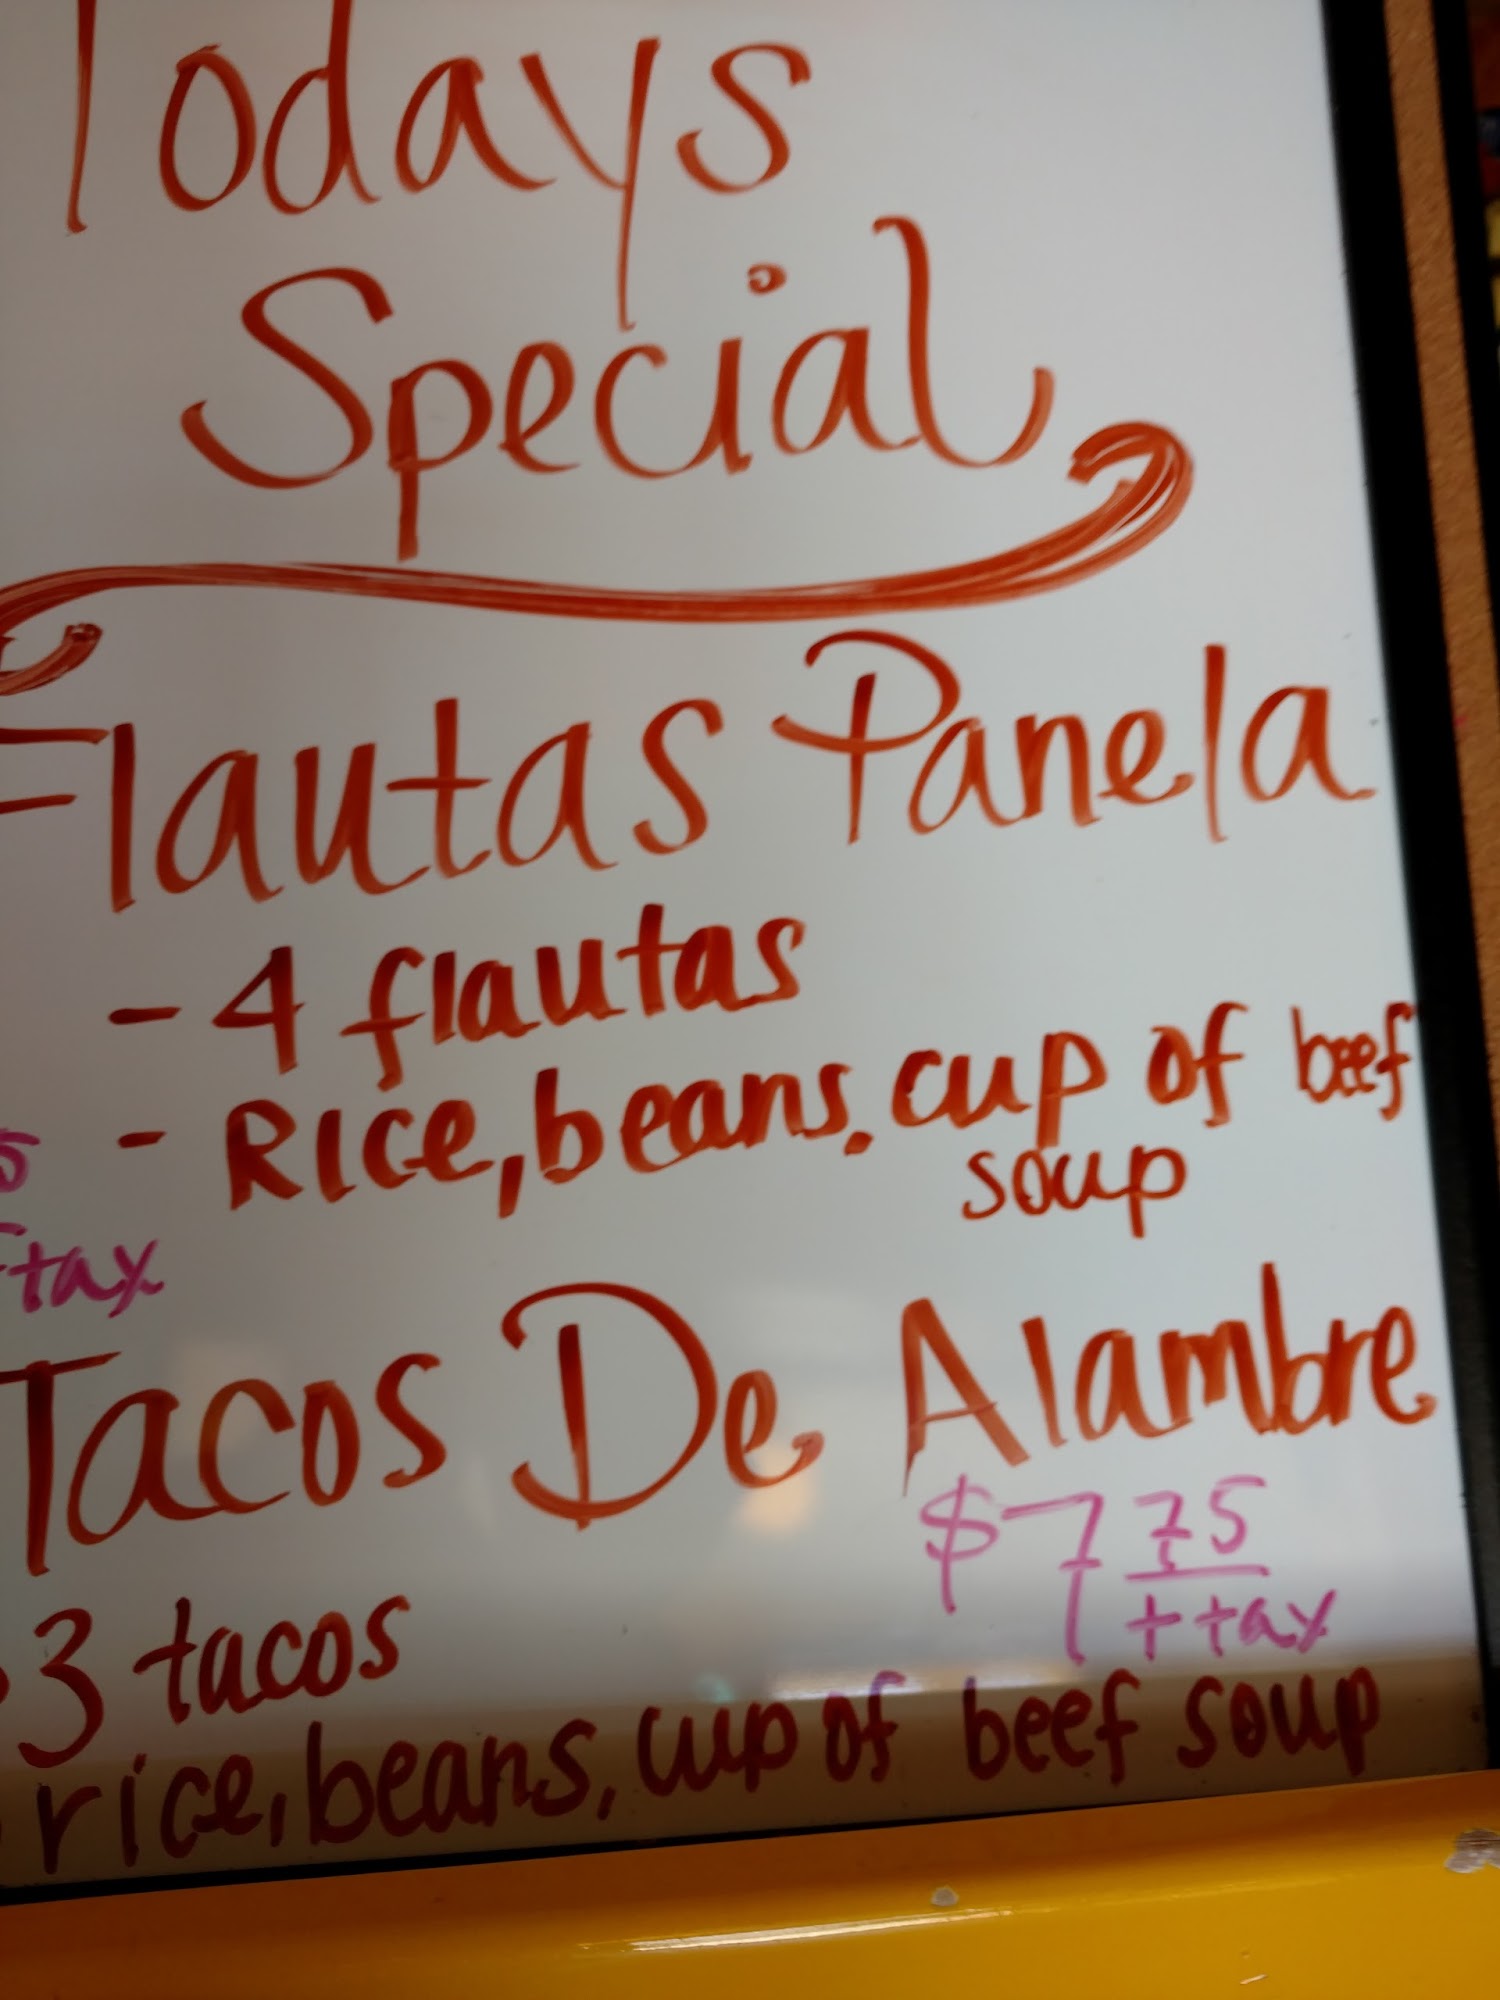 Todays
Special
Flautas Panela
- 4 flautas
- Rice, beans. cup of beef
soup
5
+tax
Tacos De Alambre
$7 75
+tax
3 tacos
rice, beans, cup of beef soup